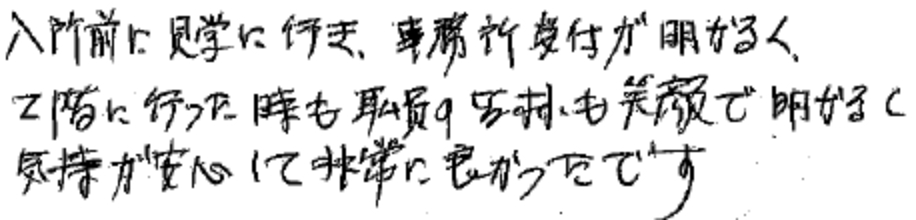 入所前に見学に行き、事務所受付が明かるく、
2階に行った時も職員の方も笑顔で明かるく
気持が安心して非常に良かったです